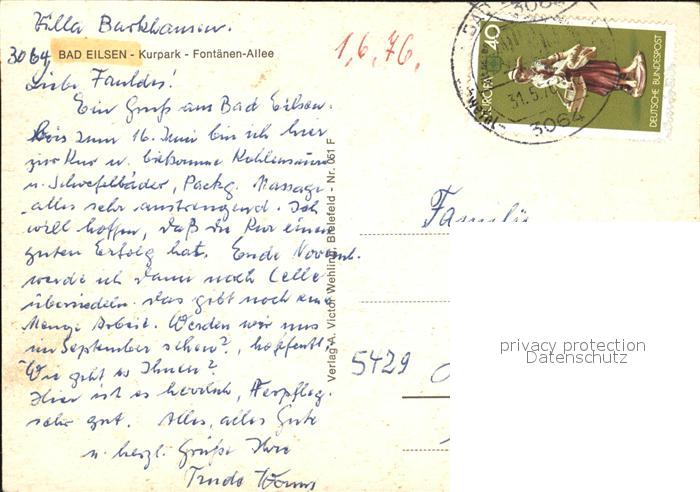 Villa Barkhausen.
3064 BAD EILSEN - Kurpark - Fontänen-Allee
1.6.76.
Liebe Fauldes!
Ein Gruß aus Bad Eilsen.
Bis zum 16. Juni bin ich hier
zur Kur u. bekomme Kohlensäure
u. Schwefelbäder, Packg. Massage
alles sehr anstrengend. Ich
will hoffen, daß die Kur einen
guten Erfolg hat. Ende Novemb.
werde ich dann nach Celle
übersiedeln. Das gibt noch eine
Menge Arbeit. Werden wir uns
im September sehen?, hoffentl.
Wie geht es Ihnen?
Hier ist es herrlich, Verpfleg.
sehr gut. Alles, alles Gute
u. herzl. Grüße Ihre
Trude
Verlag A. Victor Wehling, Bielefeld - Nr. 061 F
EUROPA 40
DEUTSCHE BUNDESPOST
3064
BAD
31.5.76
3064
Familie
5429
privacy protection
Datenschutz